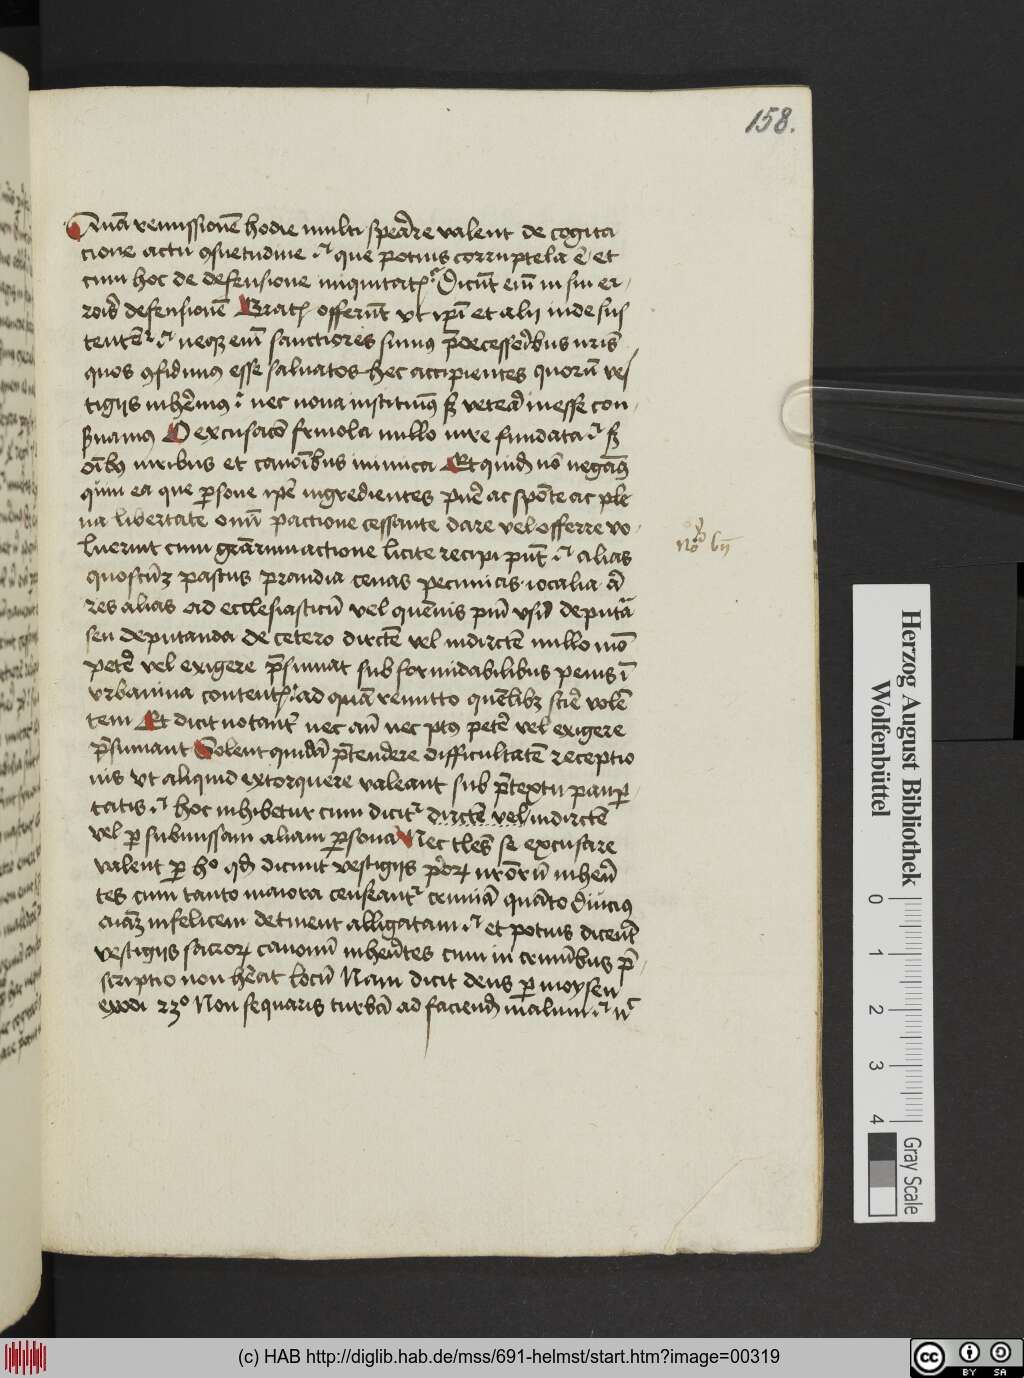 158.
Quā remissionē hodie multi spe͂are valent de cogita
cione actu ꝯsuetudine ī que potius corruptela ē et
cum hoc de defensione iniquitatꝭ Dicūt em̄ in sui er
roīs defensionē Gratꝭ offerūt vt ip̄i et alij inde sus
tentēt neqꝫ em̄ sanctiores sumꝯ p̄decessoribus nr̄is
quos ꝯfidimꝯ esse saluatos hec accipientes quorū ves
tigijs inherēmꝯ nec noua instituimꝯ sꝫ vetera in esse con
suamꝯ O excusacō friuola nullo iure fundata sꝫ
oībꝯ iuribus et canonibus inimica Et quid nō negamꝯ
quin ea que ꝑsone ip̄e ingredientes pure ac spōte ac ple
na libertate omī pactione cessante dare vel offerre vo
luerint cum gr̄arum actione licite recipi pn̄t alias
quoscūqꝫ pastus prandia cenas pecunias iocalia
res alias ad ecclesiasticū vel quēuis piū vsū deputā
seu deputanda de cetero dircte vel indircte nullo mō
petere vel exigere p̄sumat sub formidabilibus penis ī
vrbanina contentꝭ ad quā remitto quēlibꝫ scire volē
tem Et dicit notantʳ nec an̄ nec pꝰ petere vel exigere
p̄sumant Solent quidā p̄tendere difficultatē receptio
nis vt aliquid extorquere valeant sub p̄textu pauꝑ
tatis hoc inhibetur cum dicitʳ dircte vel indircte
vel ꝑ submissam aliam ꝑsonā Nec tles se excusare
valent ꝑ hᵒ qđ dicunt vestigijs pꝛioꝝ nr̄orū inherē
tes cum tanto maiora censeantʳ crimīa quāto diucius
aīaꝫ infelicem detinent alligatam et potius dicerēt
vestigijs sacroꝝ canonū inherētes cum in crimibus p̄
scriptio non hēat locū Nam dicit deus ꝑ moysen
exodi 23º Non sequaris turbā ad faciendū malum
Herzog August Bibliothek
Wolfenbüttel
0 1 2 3 4
Gray Scale
(c) HAB http://diglib.hab.de/mss/691-helmst/start.htm?image=00319
cc BY SA